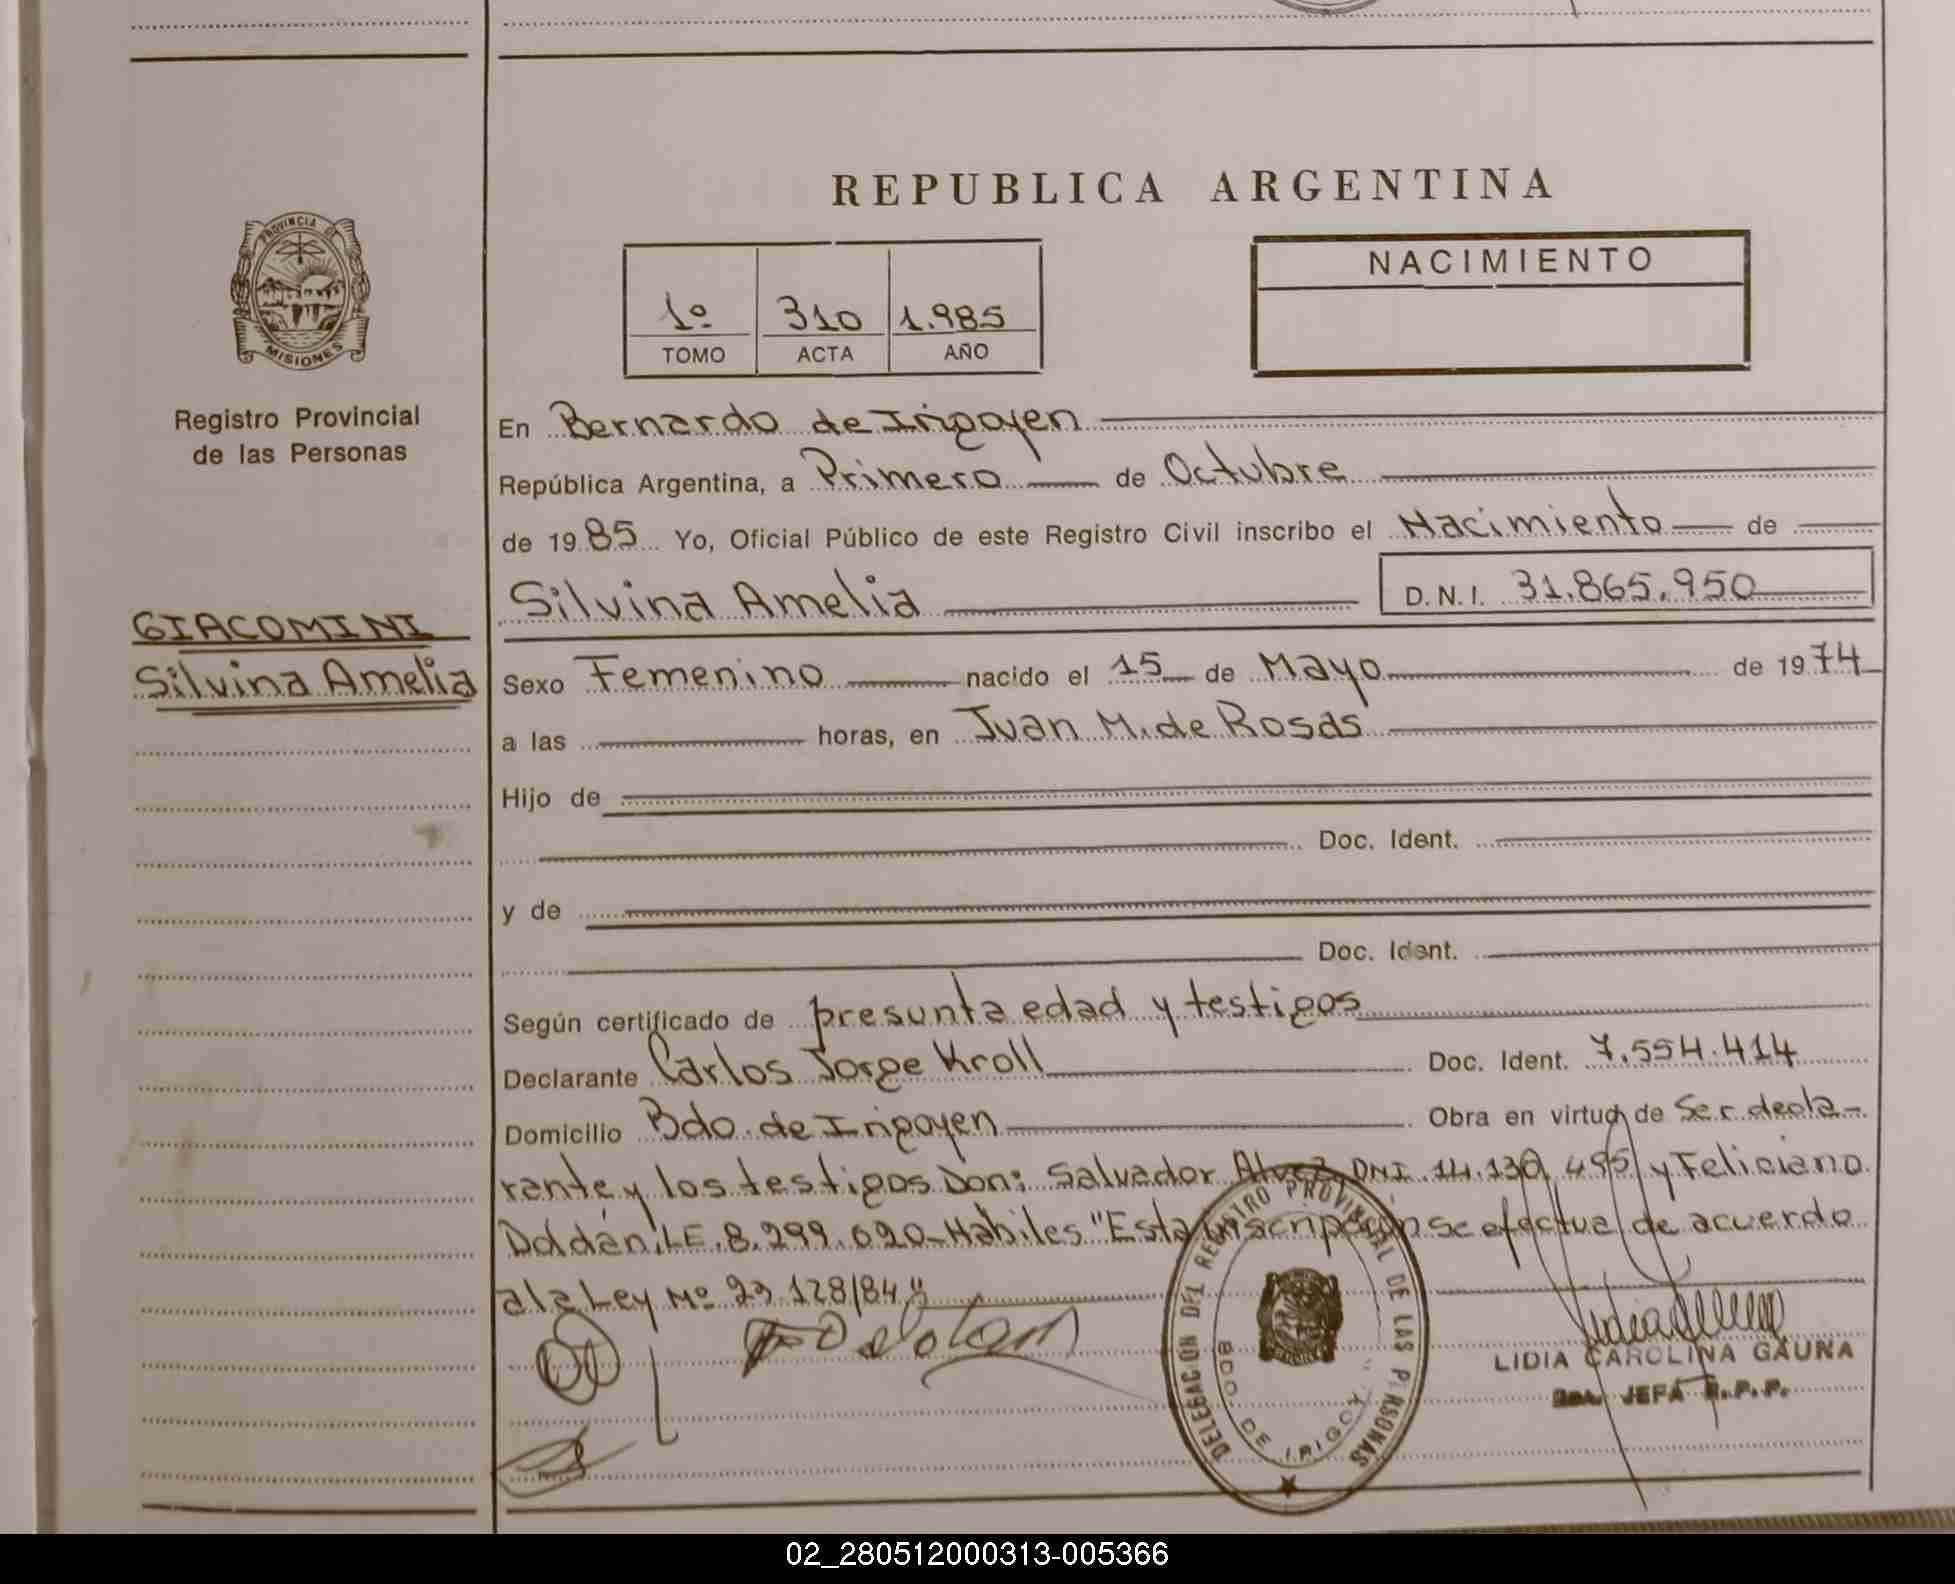 REPUBLICA ARGENTINA
PROVINCIA DE
MISIONES
Registro Provincial
de las Personas
1º 310 1.985
TOMO ACTA AÑO
NACIMIENTO
En Bernardo de Irigoyen
República Argentina, a Primero de Octubre
de 1985 Yo, Oficial Público de este Registro Civil inscribo el Nacimiento de
Silvina Amelia D.N.I. 31.865.950
GIACOMINI
Silvina Amelia
Sexo Femenino nacido el 15 de Mayo de 1974
a las horas, en Juan M. de Rosas
Hijo de
Doc. Ident.
y de
Doc. Ident.
Según certificado de presunta edad y testigos
Declarante Carlos Jorge Kroll Doc. Ident. 7.554.414
Domicilio Bdo. de Irigoyen Obra en virtud de Ser decla-
rante y los testigos Don: Salvador Alvez DNI. 14.130.495 y Feliciano
Doldán LE. 8.299.020-Habiles "Esta inscripción se efectua de acuerdo
a la Ley Nº 23 128/84"
DELEGACION DEL REGISTRO PROVINCIAL DE LAS PERSONAS
BDO. DE IRIGOYEN
LIDIA CAROLINA GAUNA
JEFA R.P.P.
02_280512000313-005366